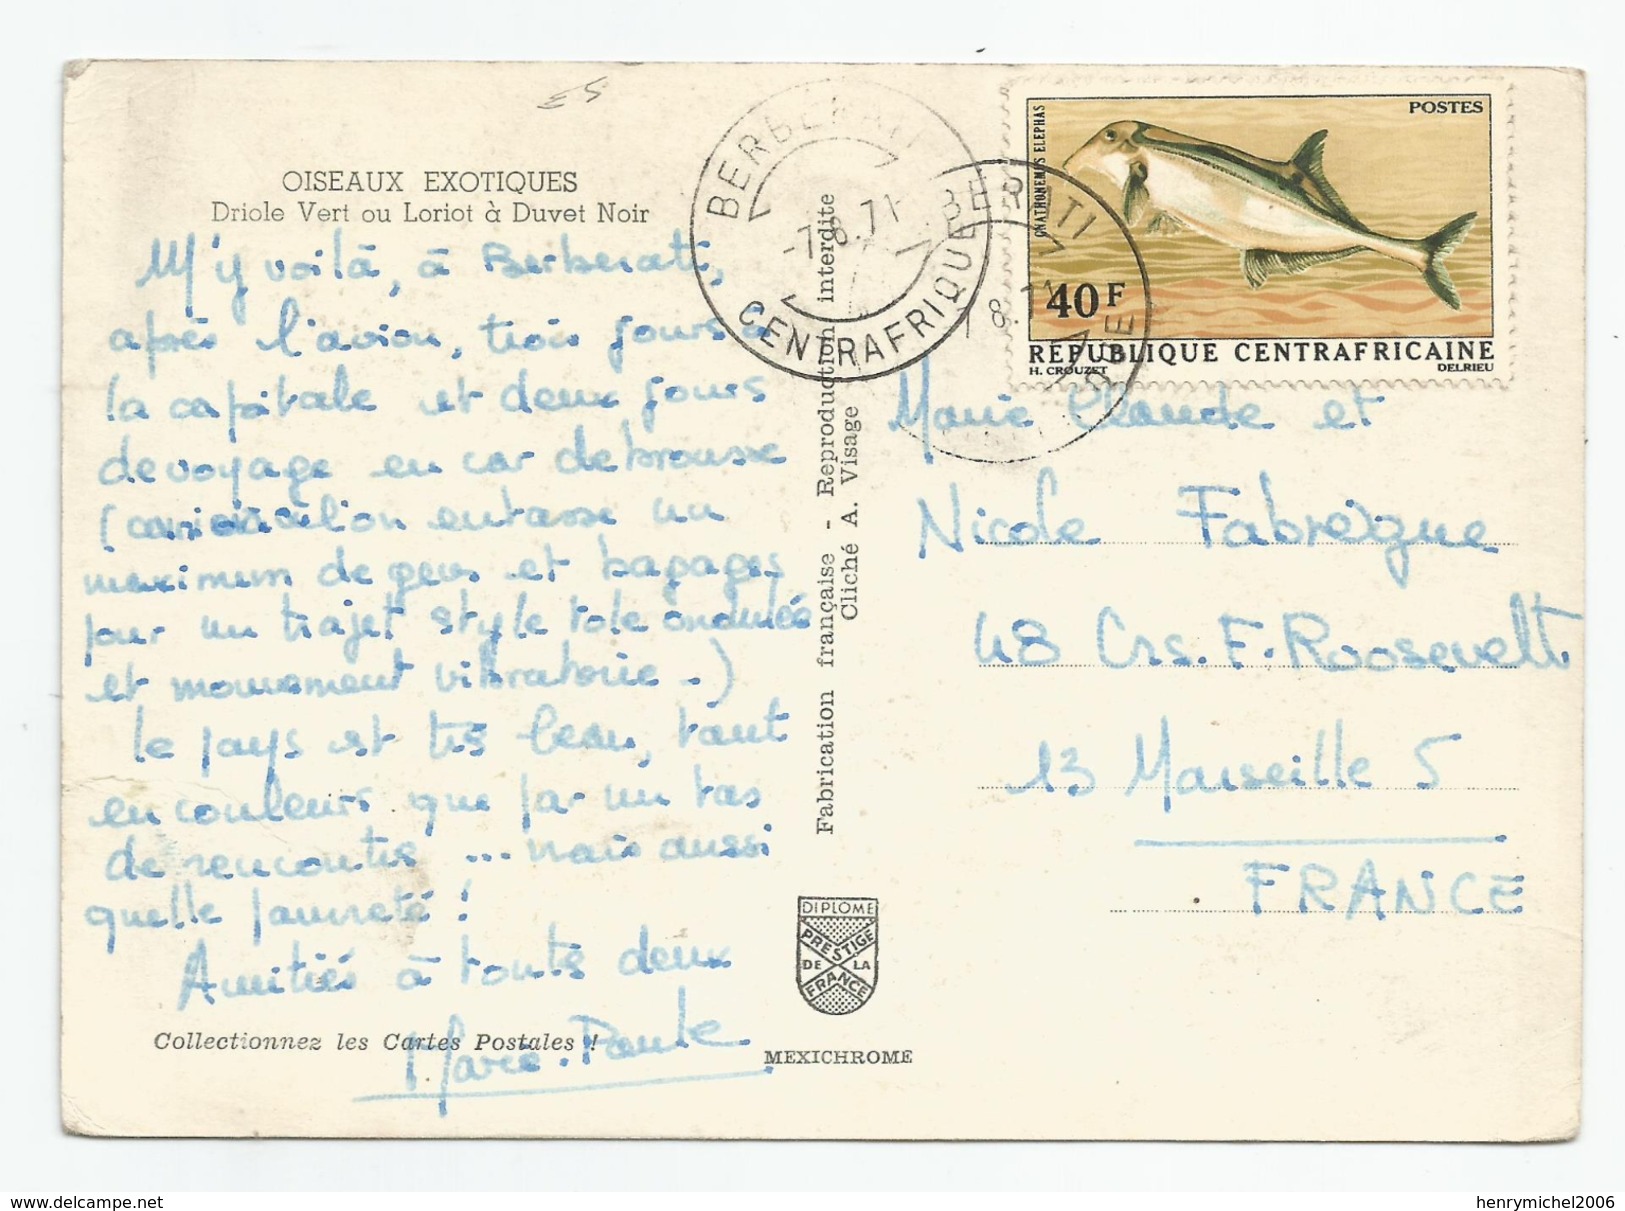 OISEAUX EXOTIQUES
Driole Vert ou Loriot à Duvet Noir
M'y voilà, à Berberati,
après l'avion, trois jours à
la capitale et deux jours
de voyage en car de brousse
( où l'on entasse un
maximum de gens et bagages
pour un trajet style tole ondulée
et mouvement vibratoire.)
le pays est très beau, tant
en couleurs que par un tas
de rencontres ... mais aussi
quelle pauvreté !
Amitiés à toutes deux
Marie-Paule
Collectionnez les Cartes Postales !
Fabrication française - Reproduction interdite
Cliché A. Visage
DIPLOME
PRESTIGE
DE LA
FRANCE
MEXICHROME
BERBERATI
-7.8.71
CENTRAFRIQUE
BERBERATI
8.71
POSTES
GNATHONEMUS ELEPHAS
40F
RÉPUBLIQUE CENTRAFRICAINE
H. CROUZET
DELRIEU
Marie Claude et
Nicole Fabreigue
48 Crs. F. Roosevelt
13 Marseille 5
FRANCE
www.delcampe.net
henrymichel2006